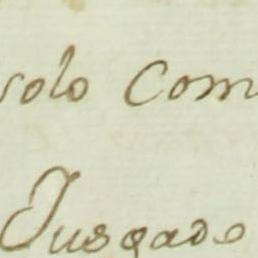 solo com
Jusgado